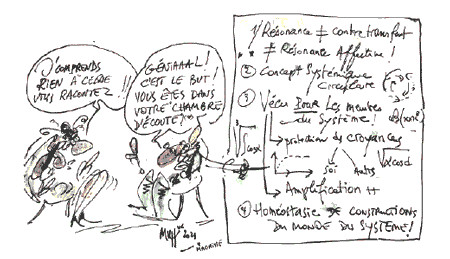 J'COMPRENDS
RIEN À CE QUE
VOUS RACONTEZ !!
GÉNIAAAL!
C'EST LE BUT!
VOUS ÊTES DANS
VOTRE "CHAMBRE
D'ÉCOUTE"
1/ Résonance ≠ contretransfert
≠ Résonance Affective!
2 Concept Systémique
Circulaire
3 Vécu POUR Les membres
du Système!
protection des croyances
Soi Autres
Amplification ++
4 Homéostasie DE CONSTRUCTIONS
DU MONDE DU SYSTÈME!
2021